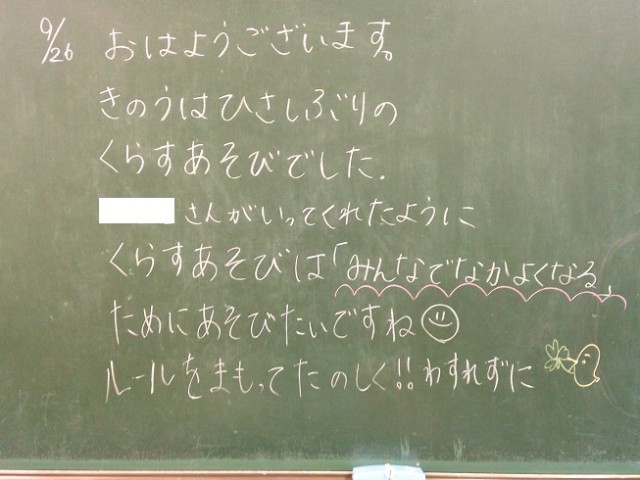 9/26 おはようございます。
きのうはひさしぶりの
くらすあそびでした.
さんがいってくれたように
くらすあそびは「みんなでなかよくなる」
ためにあそびたいですね
ルールをまもってたのしく!!わすれずに